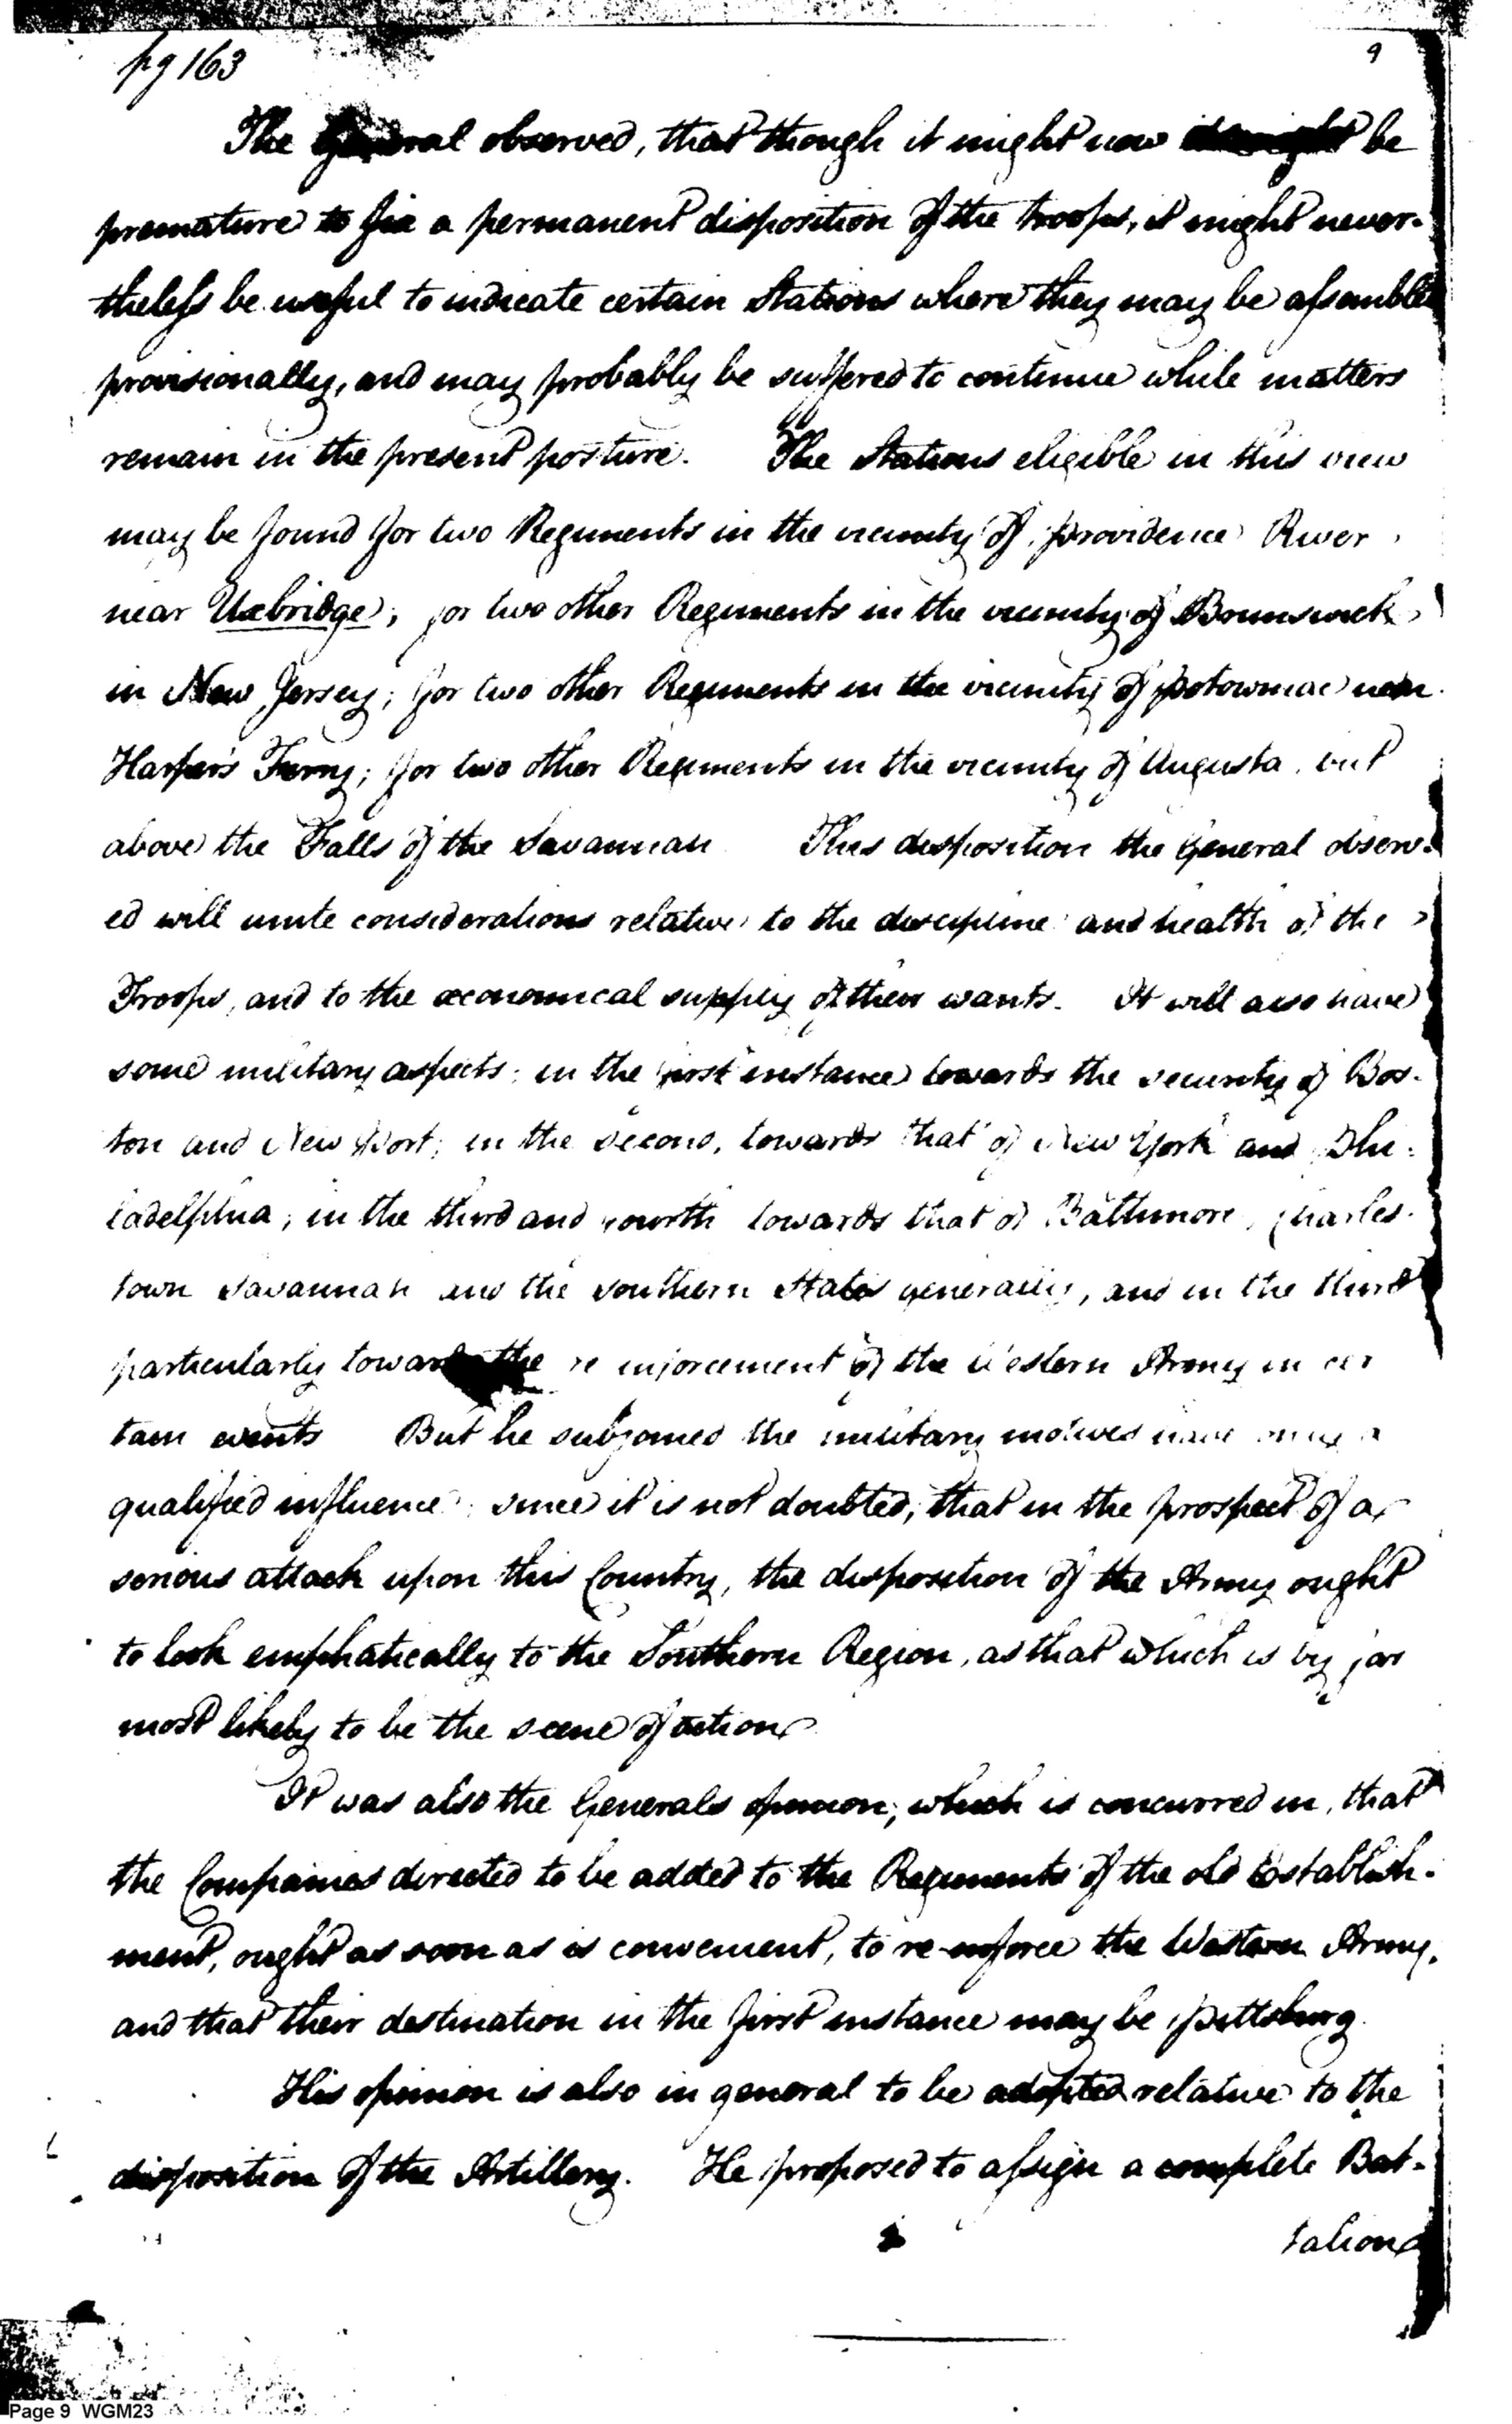 pg 163
9
The General observed, that though it might now be
premature to fix a permanent disposition of the troops, it might never-
theless be useful to indicate certain Stations where they may be assembled
provisionally, and may probably be suffered to continue while matters
remain in the present posture. The Stations eligible in this view
may be found for two Regiments in the vicinity of providence River
near Uxbridge; for two other Regiments in the vicinity of Brunswick
in New Jersey; for two other Regiments in the vicinity of potowmac near
Harper's Ferry; for two other Regiments in the vicinity of Augusta, but
above the Falls of the Savannah This disposition the General observ-
ed will unite considerations relative to the discipline and health of the
Troops, and to the œconomical supply of their wants. It will also have
some military aspects; in the first instance towards the security of Bos-
ton and New Port; in the second, towards that of New York and Phi-
ladelphia; in the third and fourth towards that of Balthimore, Charles-
town Savannah and the southern States generally, and in the third
particularly towards the re inforcement of the Western Army in cer
tain events But he subjoined the military motives have only a
qualified influence; since it is not doubted, that in the prospect of a
serious attack upon this Country, the disposition of the Army ought
to look emphatically to the Southern Region, as that which is by far
most likely to be the scene of action
It was also the Generals opinion, which is concurred in, that
the Companies directed to be added to the Regiments of the old Establish-
ment, ought as soon as is convenient, to re-inforce the Western Army,
and that their destination in the first instance may be pittsburg
His opinion is also in general to be adopted relative to the
disposition of the Artillery. He proposed to assign a complete Bat-
talion
Page 9 WGM23